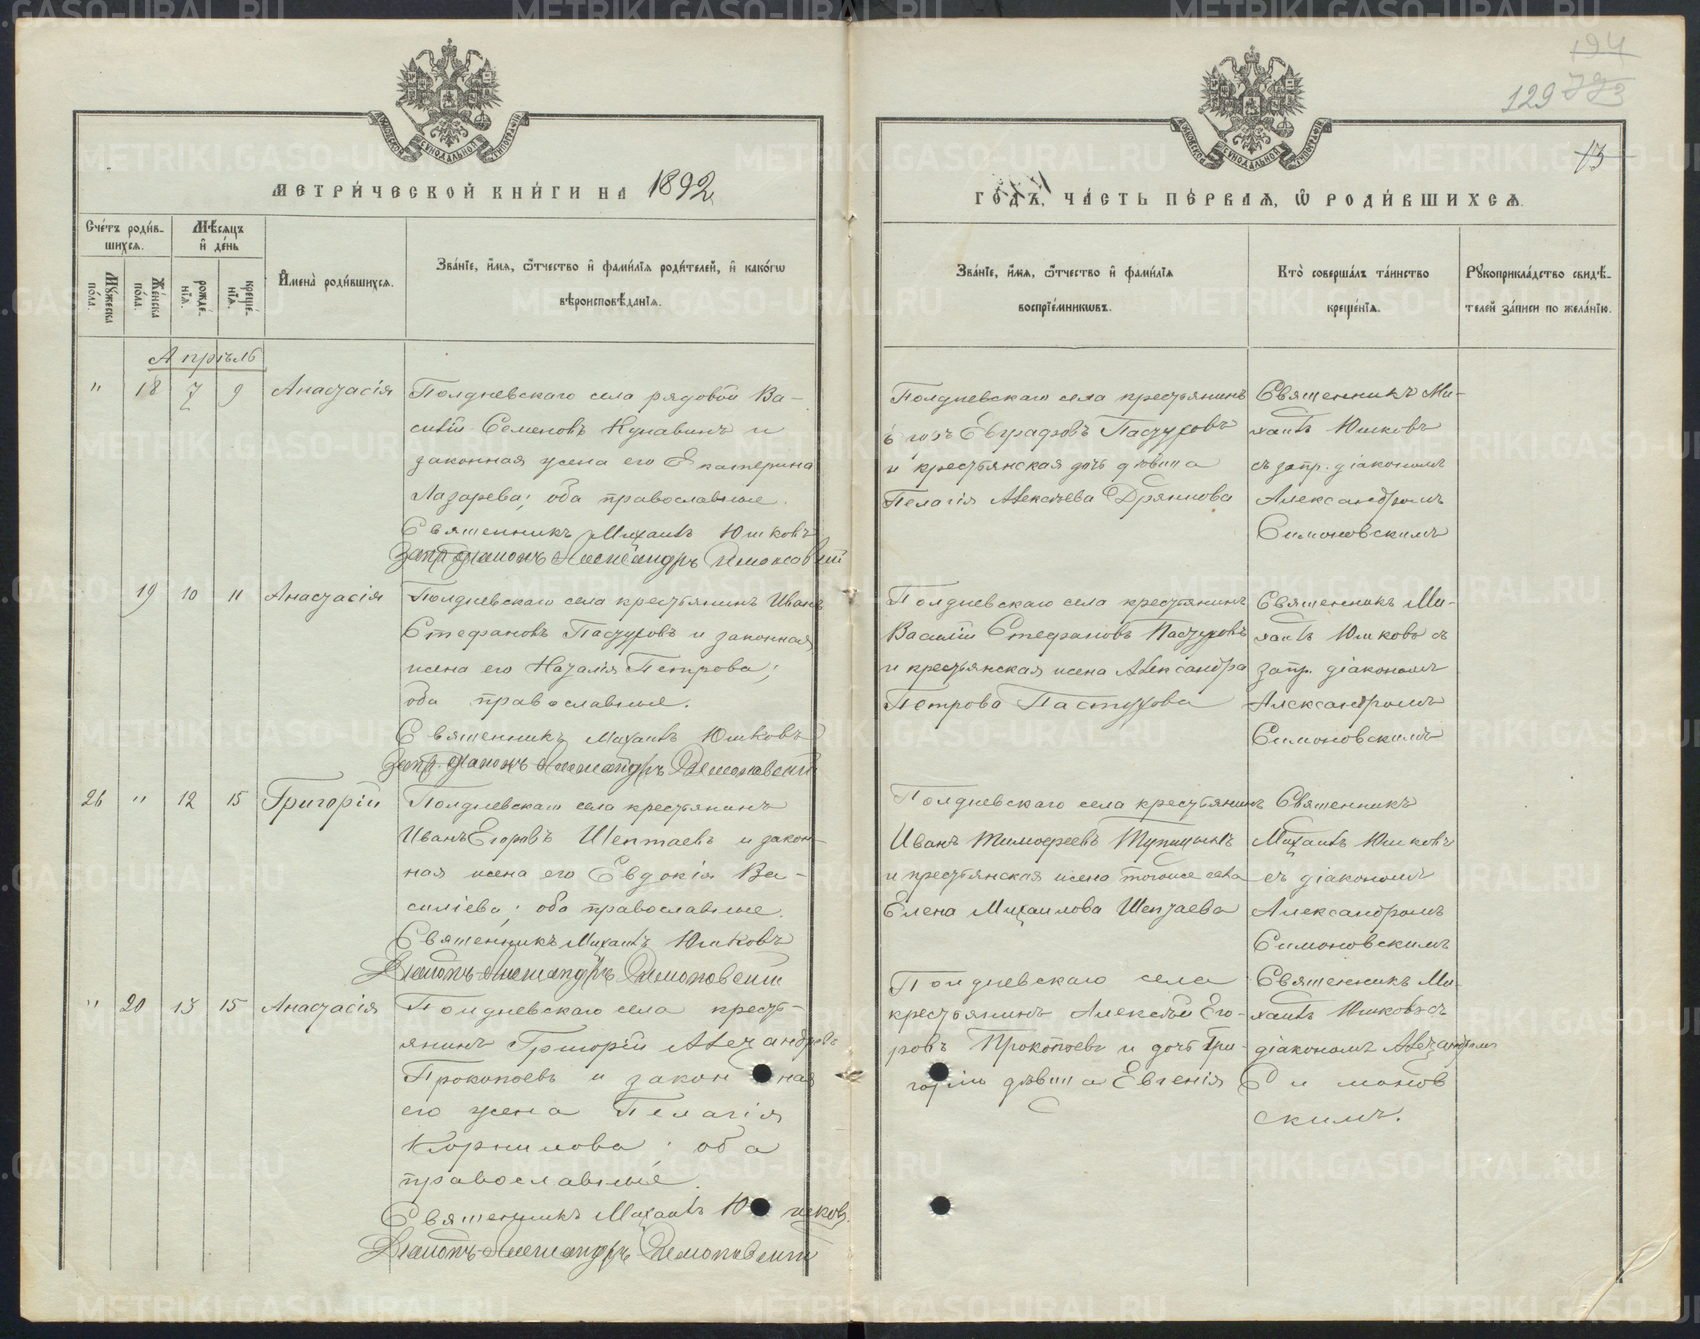 194
129
13
МЕТРИ́ЧЕСКОЙ КНИ́ГИ НА 1892
ГО́ДЪ, ЧА́СТЬ ПЕ́РВАЯ, Ѡ РОДИ́ВШИХСЯ.
Сче́тъ роди́вшихся.
Мѣ́сяцъ и҆ де́нь
Му́жеска по́ла.
Же́нска по́ла.
рожде́нїя.
креще́нїя.
И҆мена̀ роди́вшихся.
Зва́нїе, и҆́мя, ѻ҆́тчество и҆ фами́лїя роди́телей, и҆ како́гѡ
вѣроисповѣ́данїя.
Зва́нїе, и҆́мя, ѻ҆́тчество и҆ фами́лїя
воспрїе́мникѡвъ.
Кто̀ соверша́лъ та́инство
креще́нїя.
Рꙋкоприкла́дство свидѣ́телей за́писи по жела́нїю.
Апрѣль
" 18 7 9 Анастасія
Полдневскаго села рядовой Ва-
силій Семеновъ Кунавинъ и
законная жена его Екатерина
Лазарева; оба православные.
Священникъ Михаилъ Юшковъ
Запр. діаконъ Александръ Симоновскій
Полдневскаго села крестьянинъ
Егоръ Евграфовъ Пастуховъ
и крестьянская дочь дѣвица
Пелагія Алексѣева Дряннова
Священникъ Ми-
хаилъ Юшковъ
съ запр. діакономъ
Александромъ
Симоновскимъ
19 10 11 Анастасія
Полдневскаго села крестьянинъ Иванъ
Стефановъ Пастуховъ и законная
жена его Наталія Петрова;
оба православные.
Священникъ Михаилъ Юшковъ
Запр. діаконъ Александръ Симоновскій
Полдневскаго села крестьянинъ
Василій Стефановъ Пастуховъ
и крестьянская жена Александра
Петрова Пастухова
Священникъ Ми-
хаилъ Юшковъ съ
запр. діакономъ
Александромъ
Симоновскимъ
26 " 12 15 Григорій
Полдневскаго села крестьянинъ
Иванъ Егоровъ Шептаевъ и закон-
ная жена его Евдокія Ва-
силіева; оба православные.
Священникъ Михаилъ Юшковъ
Діаконъ Александръ Симоновскій
Полдневскаго села крестьянинъ
Иванъ Тимофеевъ Тупицынъ
и крестьянская жена тогоже села
Елена Михаилова Шептаева
Священникъ
Михаилъ Юшковъ
съ діакономъ
Александромъ
Симоновскимъ
" 20 13 15 Анастасія
Полдневскаго села кресть-
янинъ Григорій Александровъ
Прокопьевъ и законная
его жена Пелагія
Корнилова; оба
православные.
Священникъ Михаилъ Юшковъ
Діаконъ Александръ Симоновскій
Полдневскаго села
крестьянинъ Алексѣй Его-
ровъ Прокопьевъ и дочь Гри-
горія дѣвица Евгенія
Священникъ Ми-
хаилъ Юшковъ съ
діакономъ Александромъ
Симонов
скимъ.
METRIKI.GASO-URAL.RU